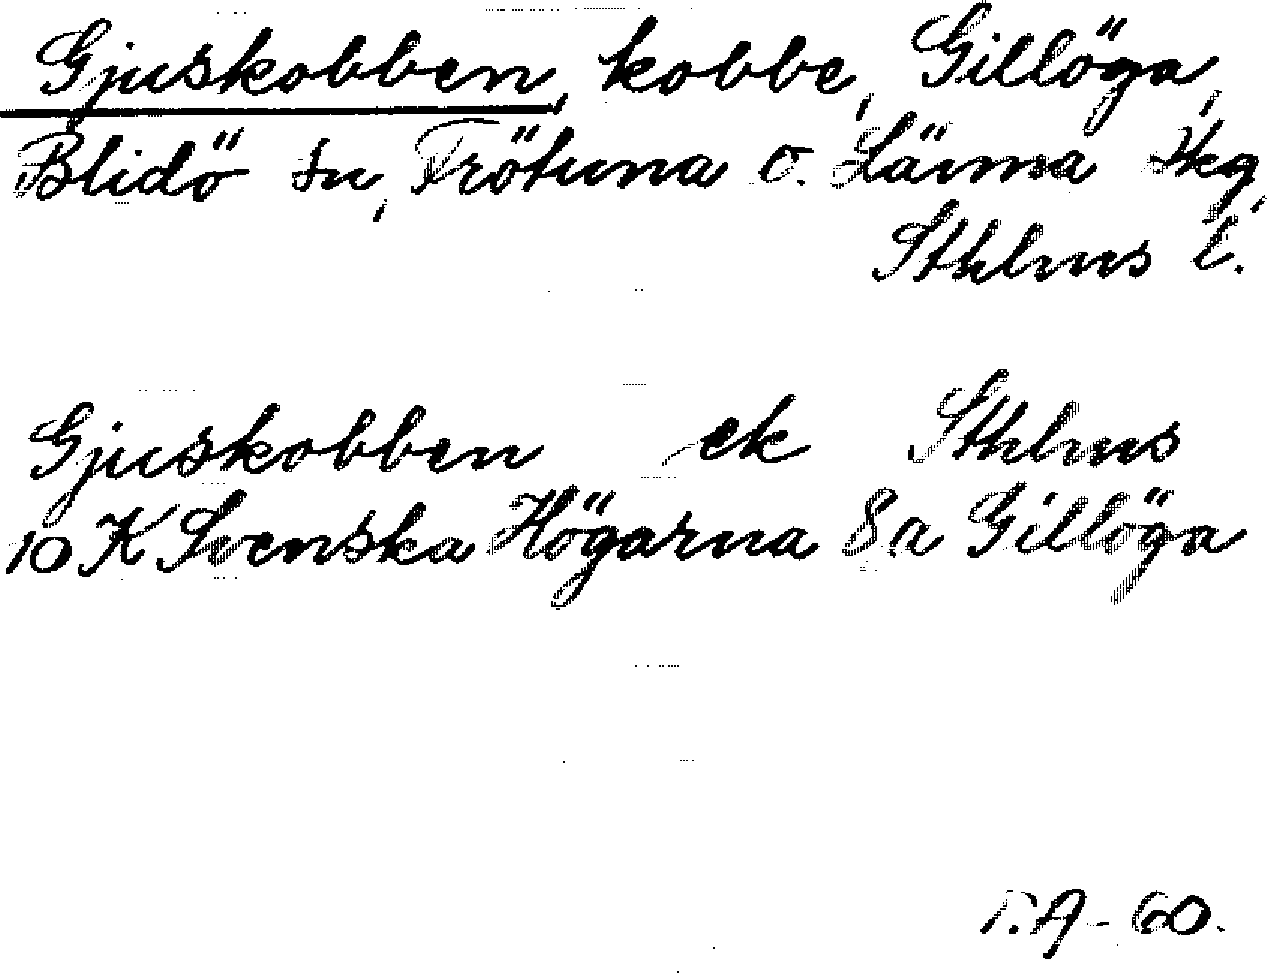 Gjuskobben, kobbe, Gillöga,
Blidö sn, Frötuna o. Länna skg,
Sthlms l.
Gjuskobben ek Sthlms
10 K Svenska Högarna 8a Gillöga
A-60.